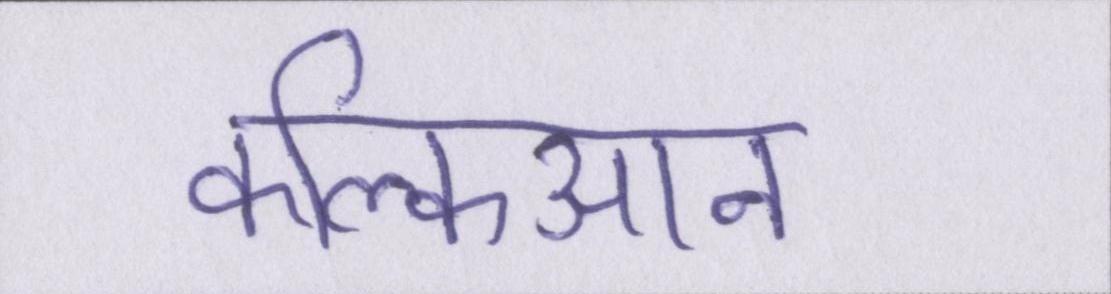 कल्किआन